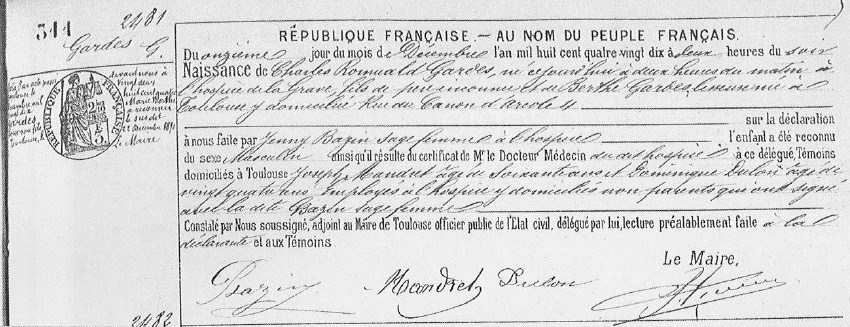 311
2481
Gardes G.
RÉPUBLIQUE FRANÇAISE. — AU NOM DU PEUPLE FRANÇAIS.
Du onzième jour du mois de Décembre l'an mil huit cent quatre vingt dix à deux heures du soir
Naissance de Charles Romuald Gardes, né ce jourd'hui à deux heures du matin à
l'hospice de la Grave, fils de père inconnu et de Berthe Gardes, lingère née à
Toulouse y domiciliée Rue du Canon d'Arcole 4
sur la déclaration
à nous faite par Jenny Bazin sage femme à l'hospice l'enfant a été reconnu
du sexe Masculin ainsi qu'il résulte du certificat de Mr le Docteur Médecin du dit hospice à ce délégué, Témoins
domiciliés à Toulouse Joseph Mandret âgé de soixante ans et Dominique Dulon âgé de
vingt quatre ans Employés à l'hospice y domiciliés non parents qui ont signé
avec la dite Bazin sage femme
Constaté par Nous soussigné, adjoint au Maire de Toulouse officier public de l'Etat civil, délégué par lui, lecture préalablement faite à la
déclarante et aux Témoins
Le Maire,
Bazin Mandret Dulon
RÉPUBLIQUE FRANÇAISE
2482